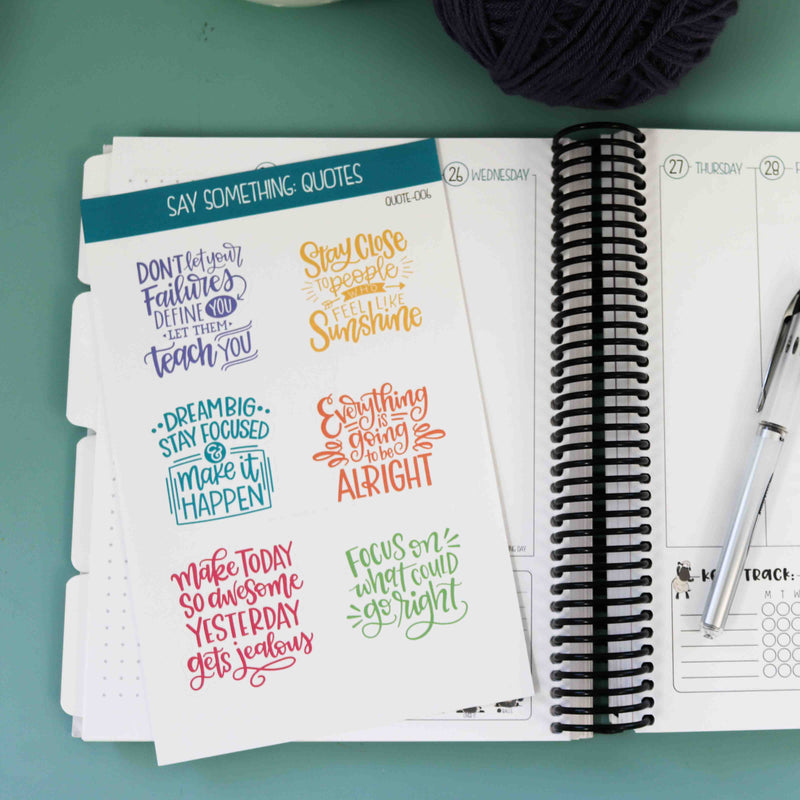 SAY SOMETHING: QUOTES
QUOTE-006
DON'T let your
Failures
DEFINE YOU
• LET THEM •
teach YOU
Stay CLOSE
TO people
WHO
FEEL LIKE
Sunshine
DREAM BIG
STAY FOCUSED
&
make it
HAPPEN
Everything
is
going
to be
ALRIGHT
make TODAY
SO awesome
YESTERDAY
gets jealous
FOCUS on
what COULD
go right
26 WEDNESDAY
27 THURSDAY
28
TRACK:
M T W